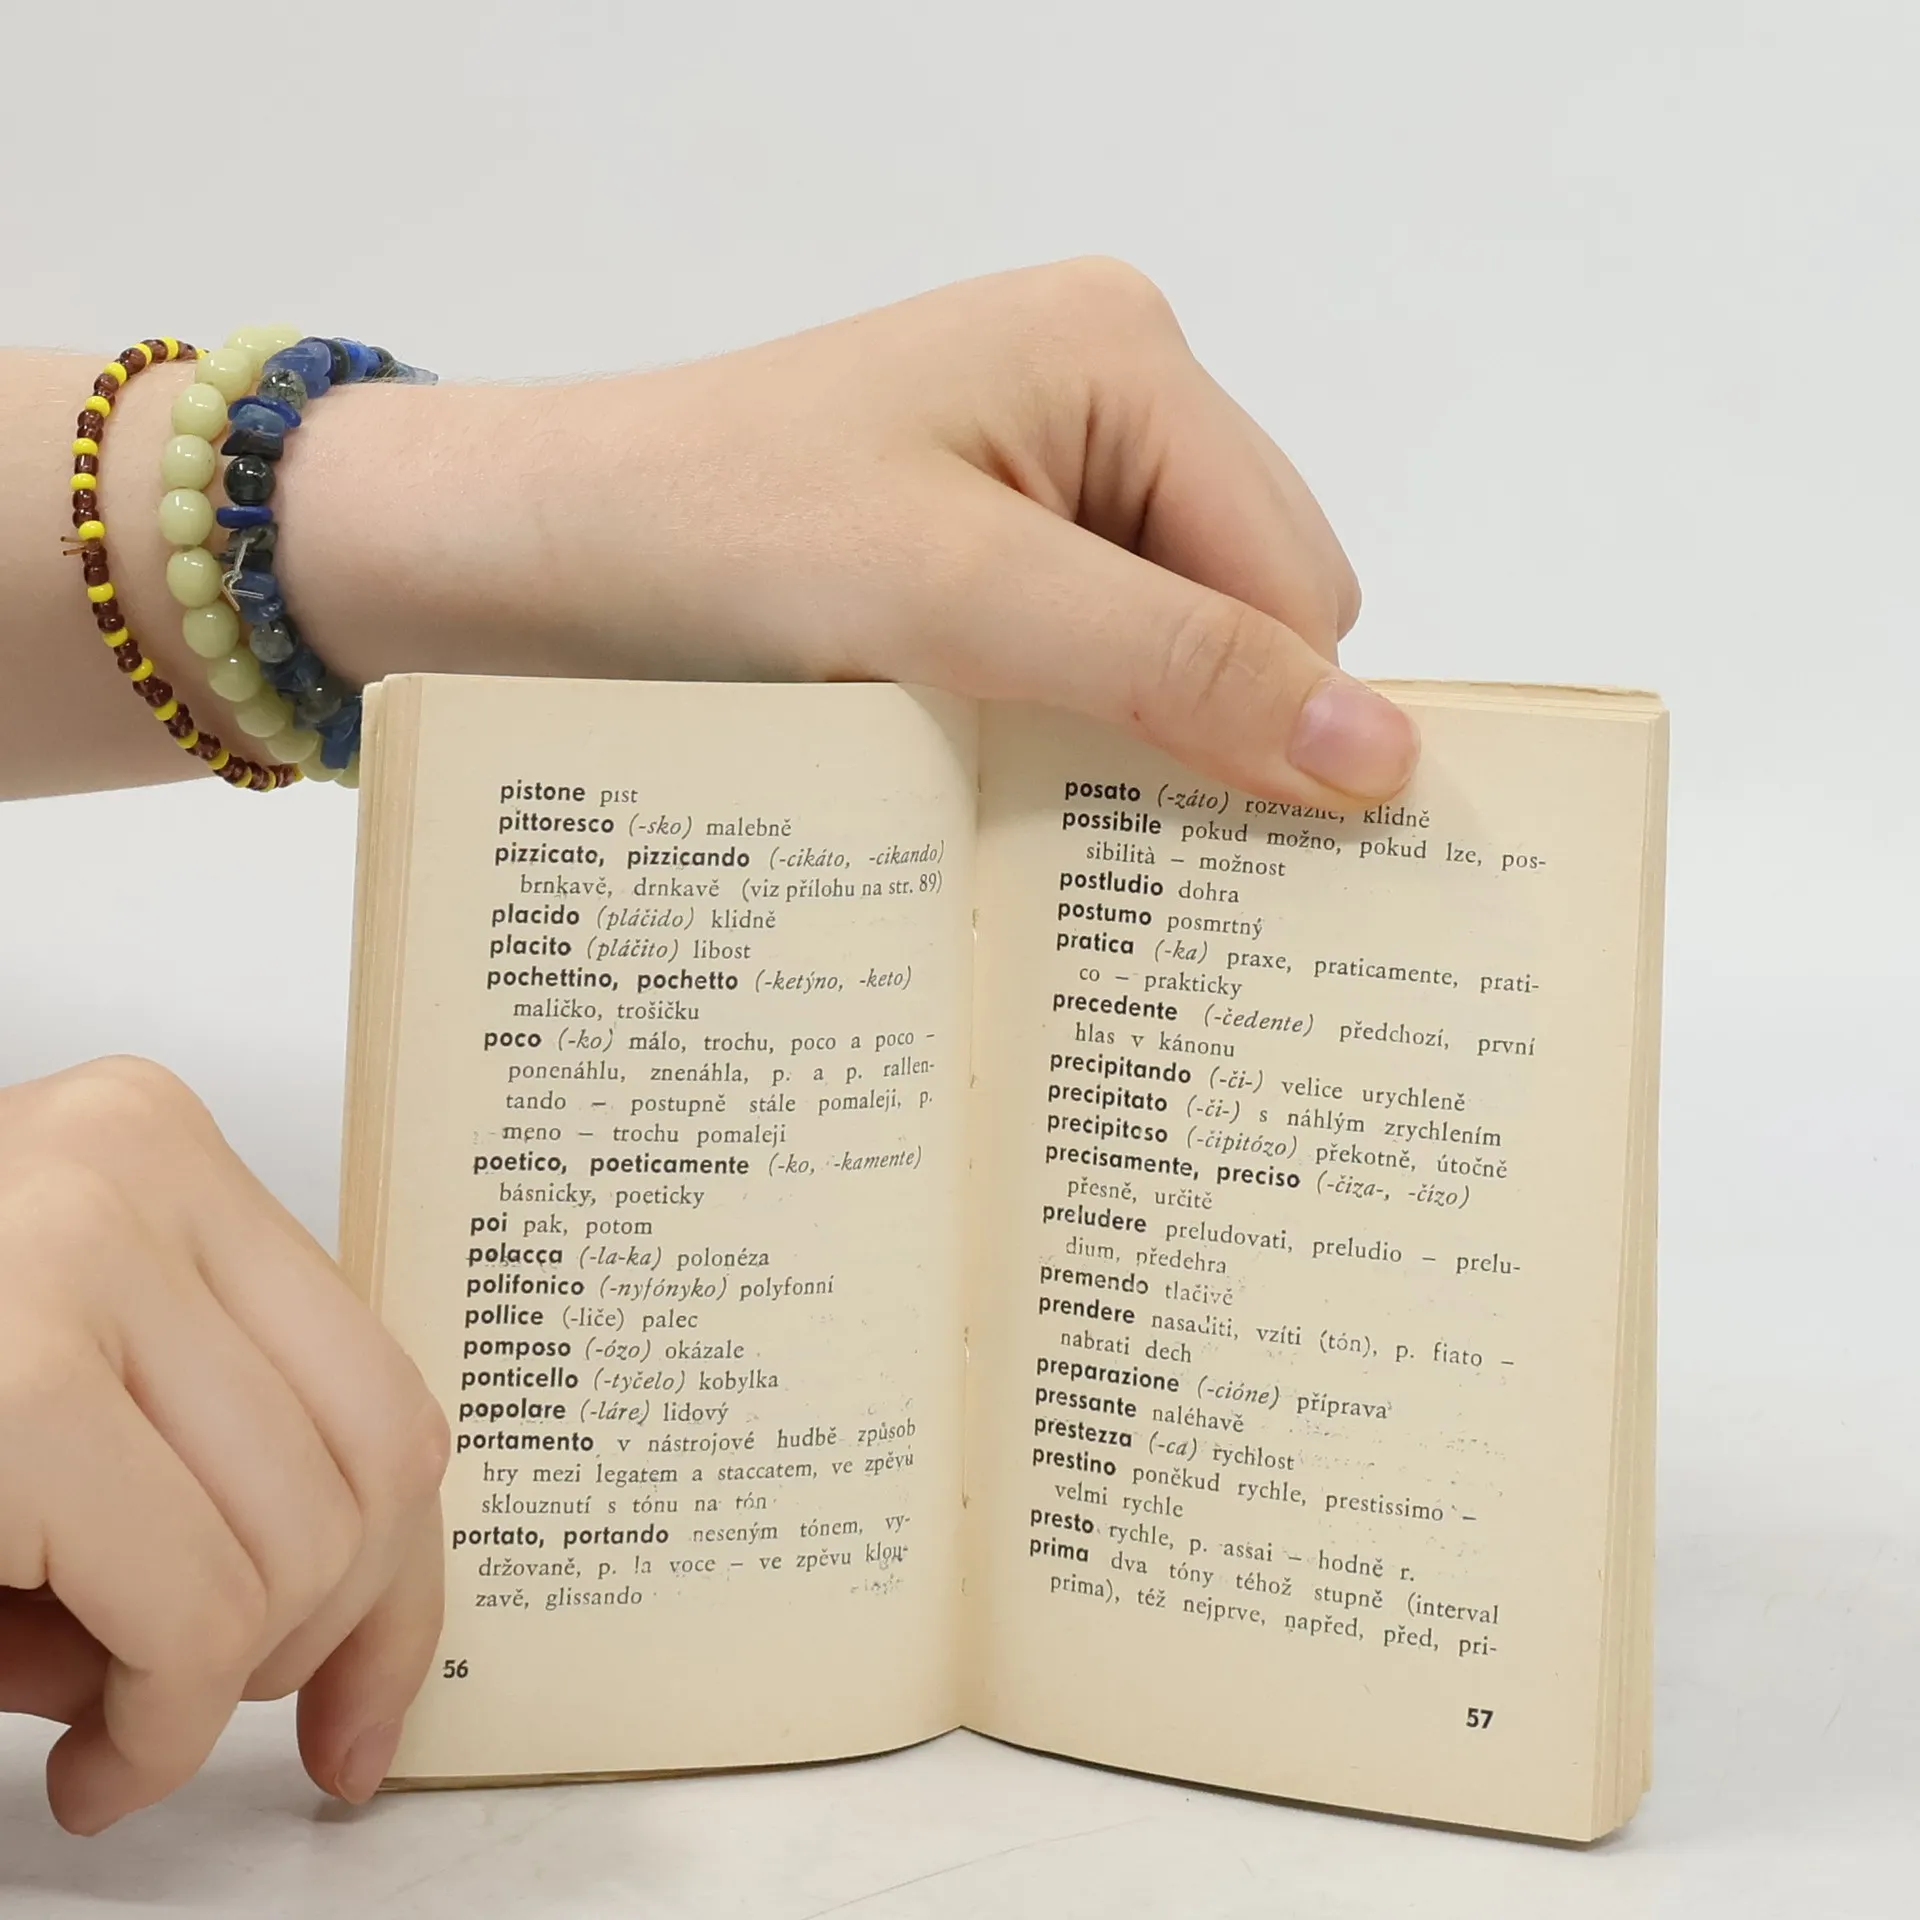 pistone píst
pittoresco (-sko) malebně
pizzicato, pizzicando (-cikáto, -cikando)
brnkavě, drnkavě (viz přílohu na str. 89)
placido (pláčido) klidně
placito (pláčito) libost
pochettino, pochetto (-ketýno, -keto)
maličko, trošičku
poco (-ko) málo, trochu, poco a poco –
ponenáhlu, znenáhla, p. a p. rallen-
tando – postupně stále pomaleji, p.
meno – trochu pomaleji
poetico, poeticamente (-ko, -kamente)
básnicky, poeticky
poi pak, potom
polacca (-la-ka) polonéza
polifonico (-nyfónyko) polyfonní
pollice (-liče) palec
pomposo (-ózo) okázale
ponticello (-tyčelo) kobylka
popolare (-láre) lidový
portamento v nástrojové hudbě způsob
hry mezi legatem a staccatem, ve zpěvu
sklouznutí s tónu na tón
portato, portando neseným tónem, vy-
držovaně, p. la voce – ve zpěvu klou-
zavě, glissando
56
posato (-záto) rozvážně, klidně
possibile pokud možno, pokud lze, pos-
sibilità – možnost
postludio dohra
postumo posmrtný
pratica (-ka) praxe, praticamente, prati-
co – prakticky
precedente (-čedente) předchozí, první
hlas v kánonu
precipitando (-či-) velice urychleně
precipitato (-či-) s náhlým zrychlením
precipitoso (-čipitózo) překotně, útočně
precisamente, preciso (-čiza-, -čízo)
přesně, určitě
preludere preludovati, preludio – prelu-
dium, předehra
premendo tlačivě
prendere nasaditi, vzíti (tón), p. fiato –
nabrati dech
preparazione (-cióne) příprava
pressante naléhavě
prestezza (-ca) rychlost
prestino poněkud rychle, prestissimo –
velmi rychle
presto rychle, p. assai – hodně r.
prima dva tóny téhož stupně (interval
prima), též nejprve, napřed, před, pri-
57